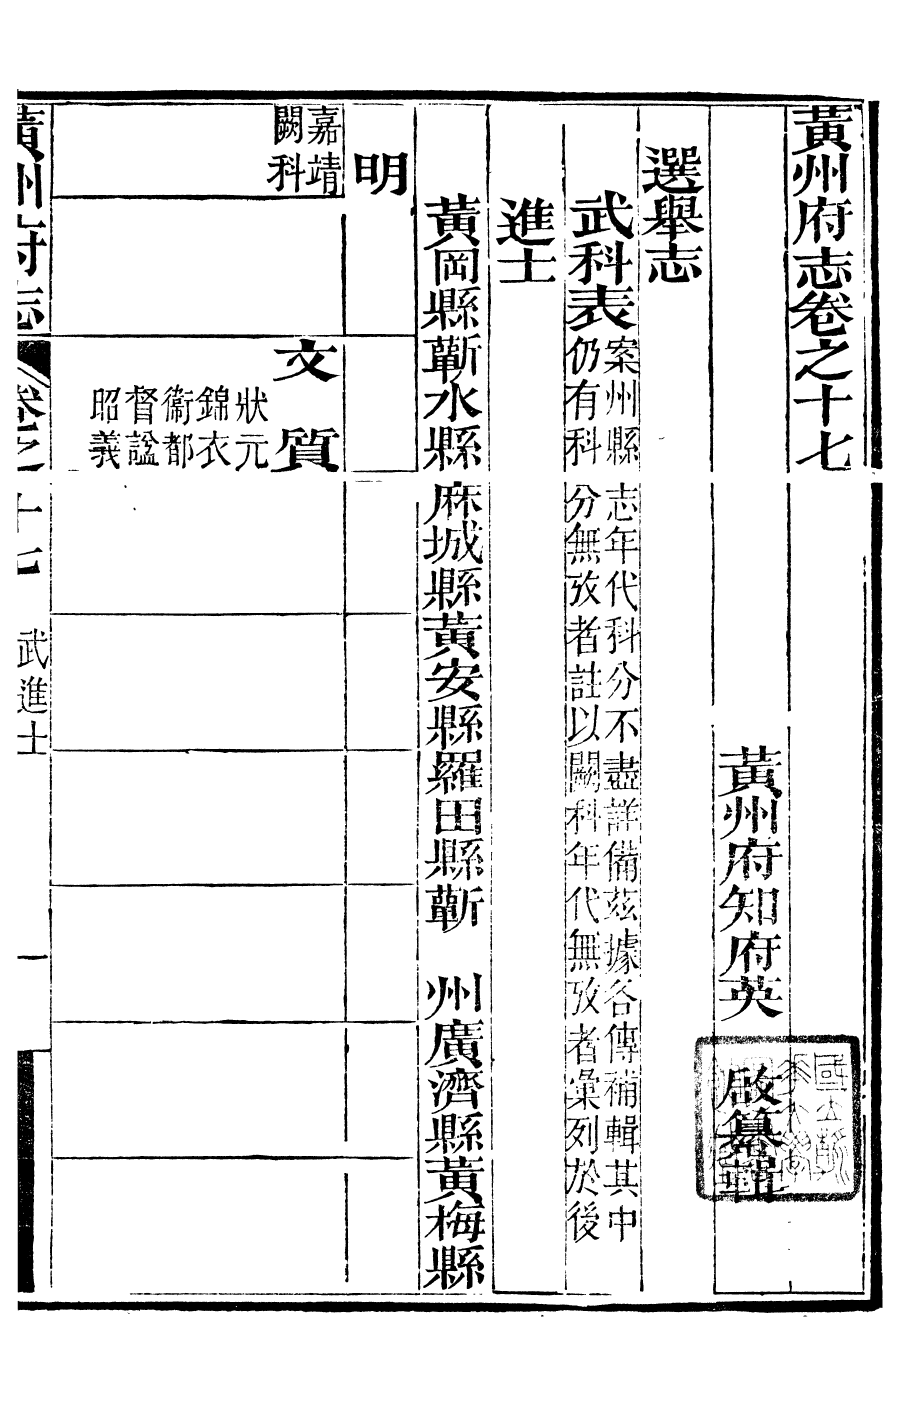 黃州府志卷之十七
黃州府知府英啟纂輯
選舉志
武科表
案州縣志年代科分不盡詳備茲據各傳補輯其中
仍有科分無攷者註以闕科年代無攷者彙列於後
進士
黃岡縣蘄水縣麻城縣黃安縣羅田縣蘄　州廣濟縣黃梅縣
明
嘉靖
闕科
文質
狀元
錦衣
衞都
督諡
昭義
黃州府志　卷之十七　武進士　一